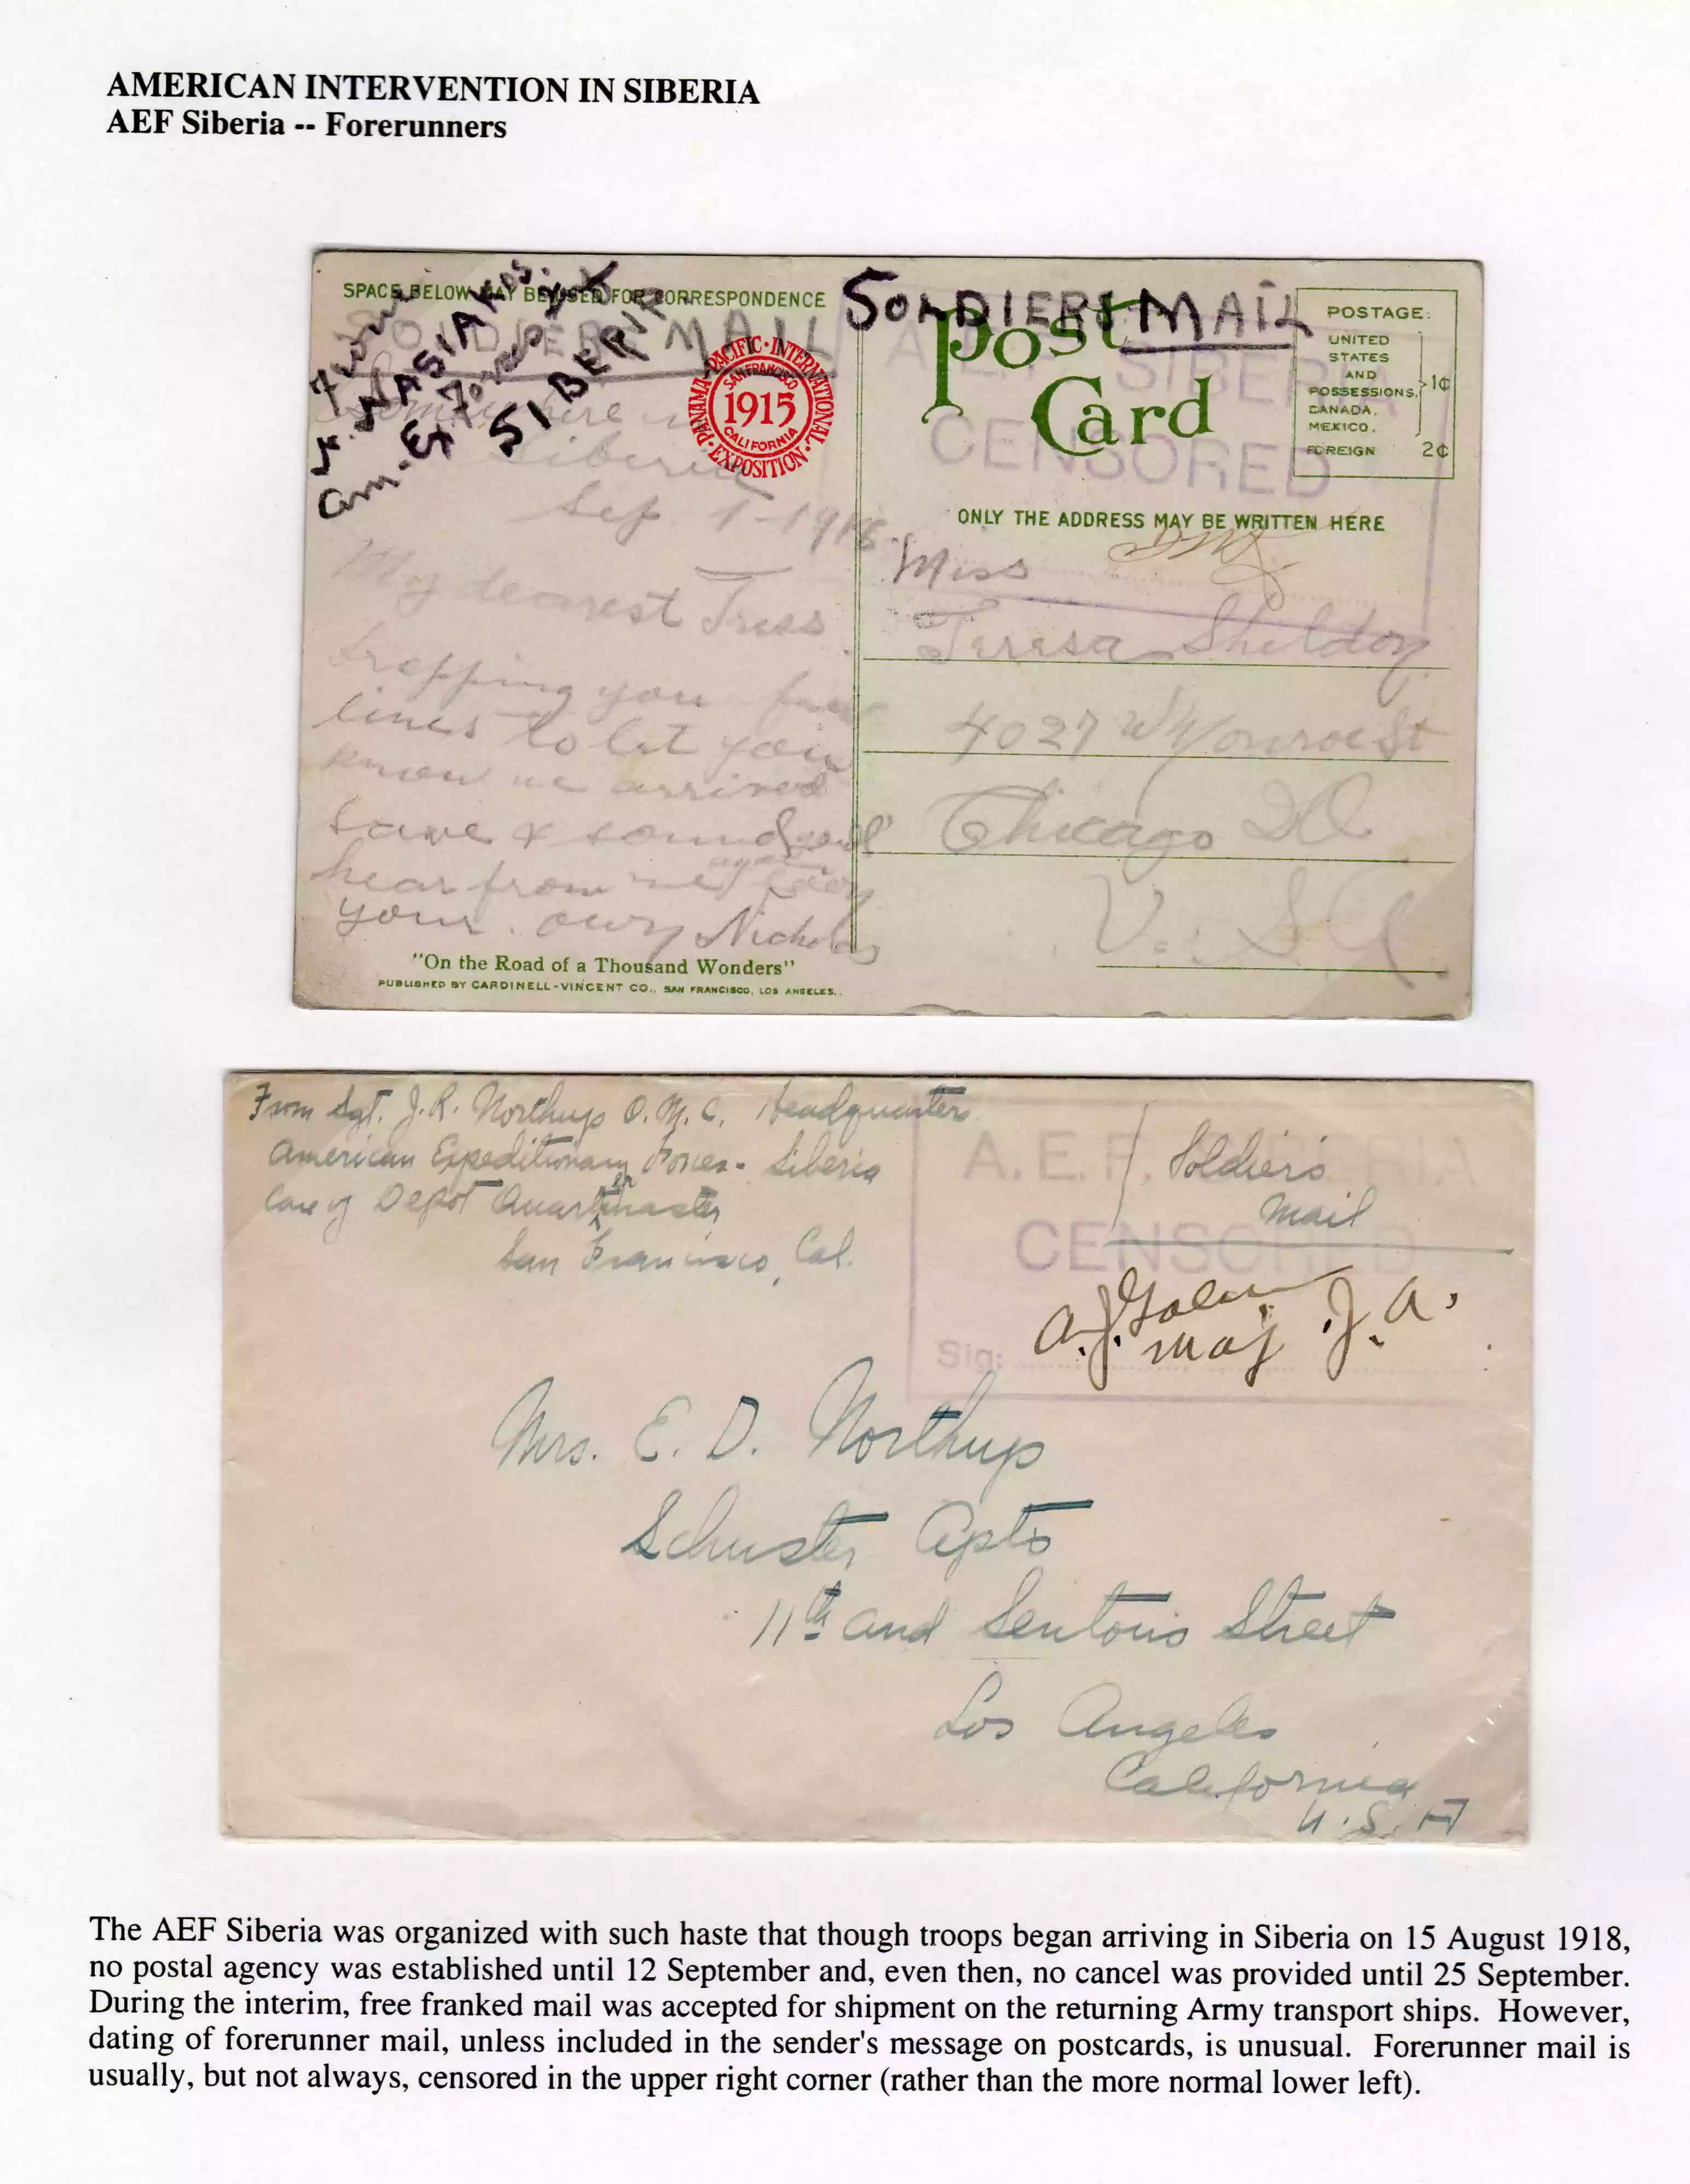 AMERICAN INTERVENTION IN SIBERIA
AEF Siberia -- Forerunners
SPACE BELOW MAY BE USED FOR CORRESPONDENCE
From
Am. Ex Forces
SIBERIA
SOLDIERS MAIL
SOLDIERS MAIL
PANAMA · PACIFIC · INTERNATIONAL · EXPOSITION
SAN FRANCISCO
1915
CALIFORNIA
Post
Card
POSTAGE:
UNITED
STATES
AND
POSSESSIONS.
CANADA.
MEXICO.
1¢
FOREIGN 2¢
A.E.F. SIBERIA
CENSORED
ONLY THE ADDRESS MAY BE WRITTEN HERE
Somewhere in
Siberia
Sep 1-1918.
My dearest Tress
Dropping you few
lines to let you
know we arrived
save & sound
hear from me again
your own Nicholas
Miss
Teresa Sheldon
4027 W Monroe St
Chicago Ill
U.S.A
"On the Road of a Thousand Wonders"
PUBLISHED BY CARDINELL-VINCENT CO., SAN FRANCISCO, LOS ANGELES.
From Sgt. J.R. Northup Q.M.C. Headquarters
American Expeditionary Forces - Siberia
Care of Depot Quartermaster
San Francisco, Cal.
Soldiers
Mail
A.E.F. SIBERIA
CENSORED
Sig:
Maj. J.A.
Mrs. E. D. Northup
Schuster Apts
11th and Sentous Street
Los Angeles
California
U.S.A
The AEF Siberia was organized with such haste that though troops began arriving in Siberia on 15 August 1918,
no postal agency was established until 12 September and, even then, no cancel was provided until 25 September.
During the interim, free franked mail was accepted for shipment on the returning Army transport ships. However,
dating of forerunner mail, unless included in the sender's message on postcards, is unusual. Forerunner mail is
usually, but not always, censored in the upper right corner (rather than the more normal lower left).